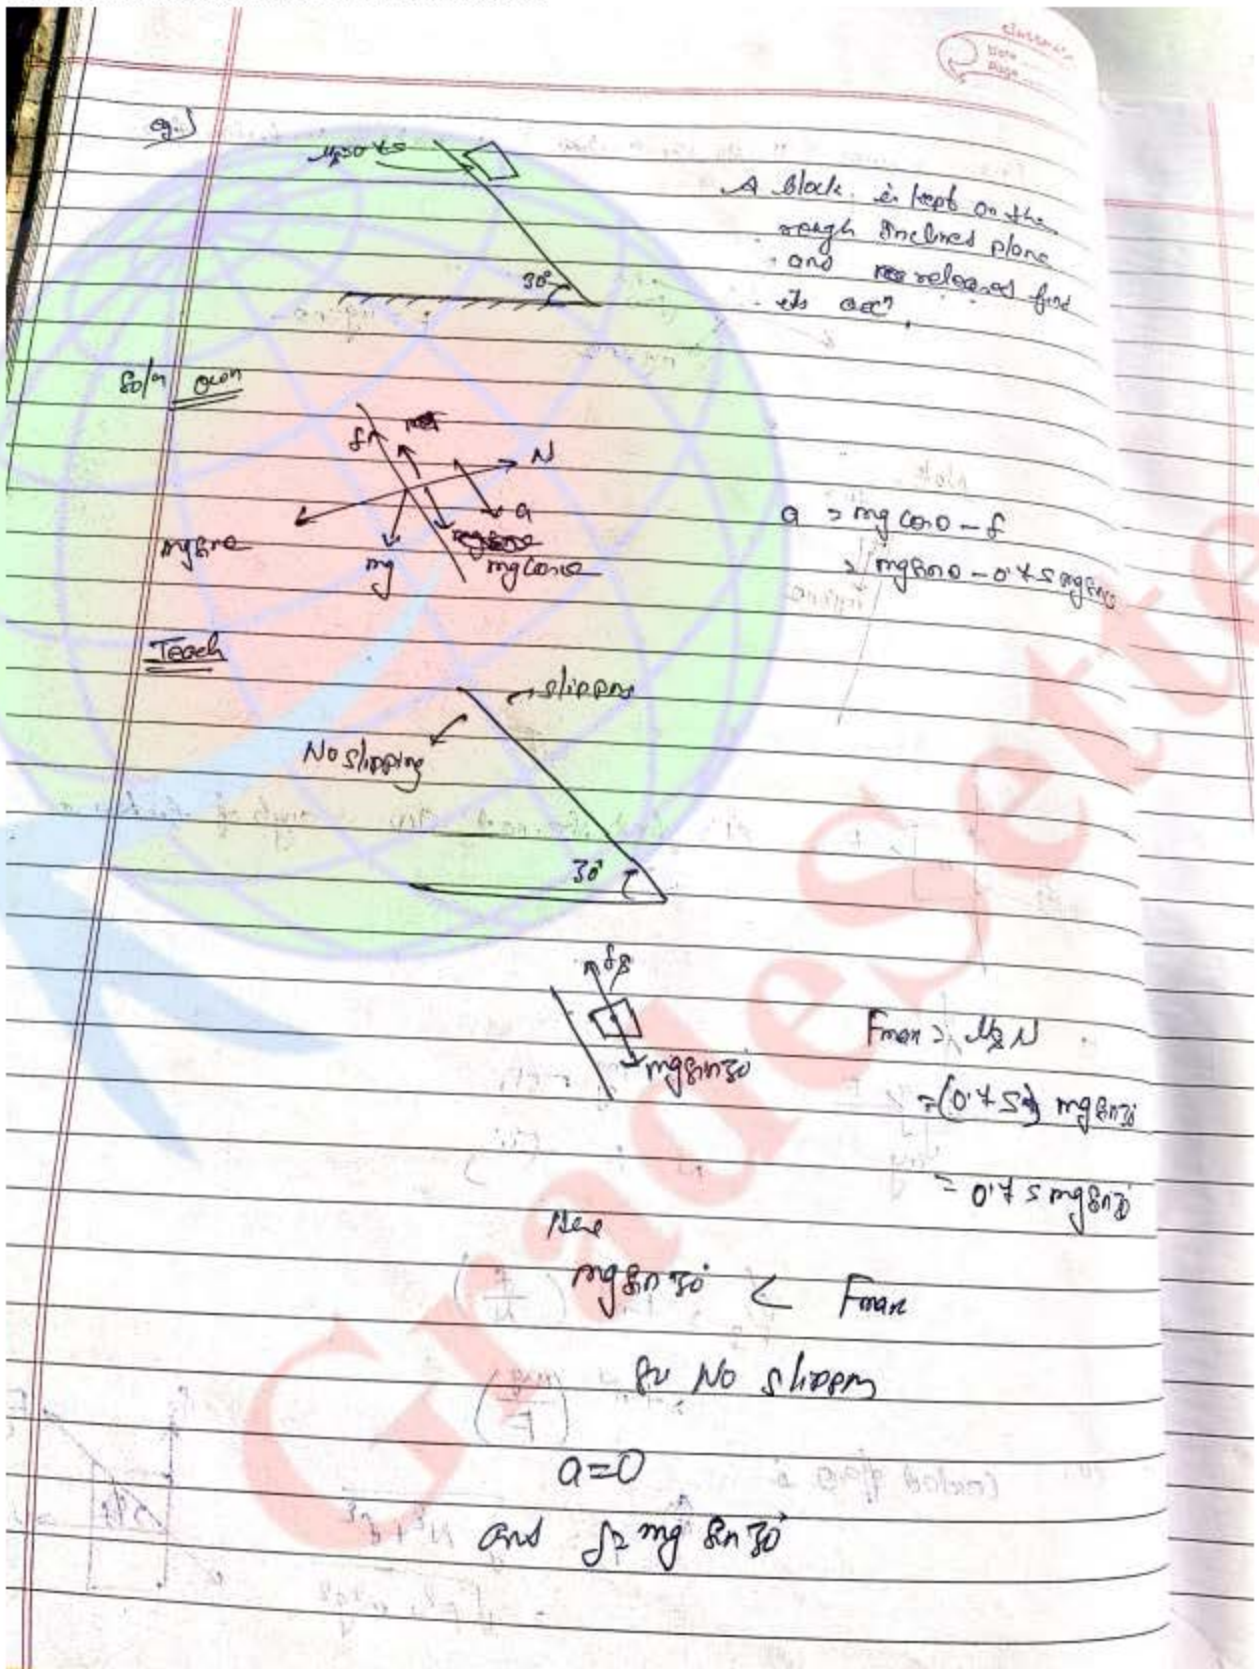 classmate
Date
Page
eg.)
μ = 0.75
A block is kept on the
rough inclined plane
and released find
its accn.
30°
Soln own
f
N
a
mg sinθ
mg
mg cosθ
a = mg cosθ - f
= mg sinθ - 0.75 mg sinθ
Teach
slipping
No slipping
30°
fs
mg sin30°
Fmax = μs N
= (0.75) mg sin30°
= 0.75 mg sin30°
Here
mg sin 30° < Fmax
So No slipping
a=0
and f = mg sin 30°
GradeSette